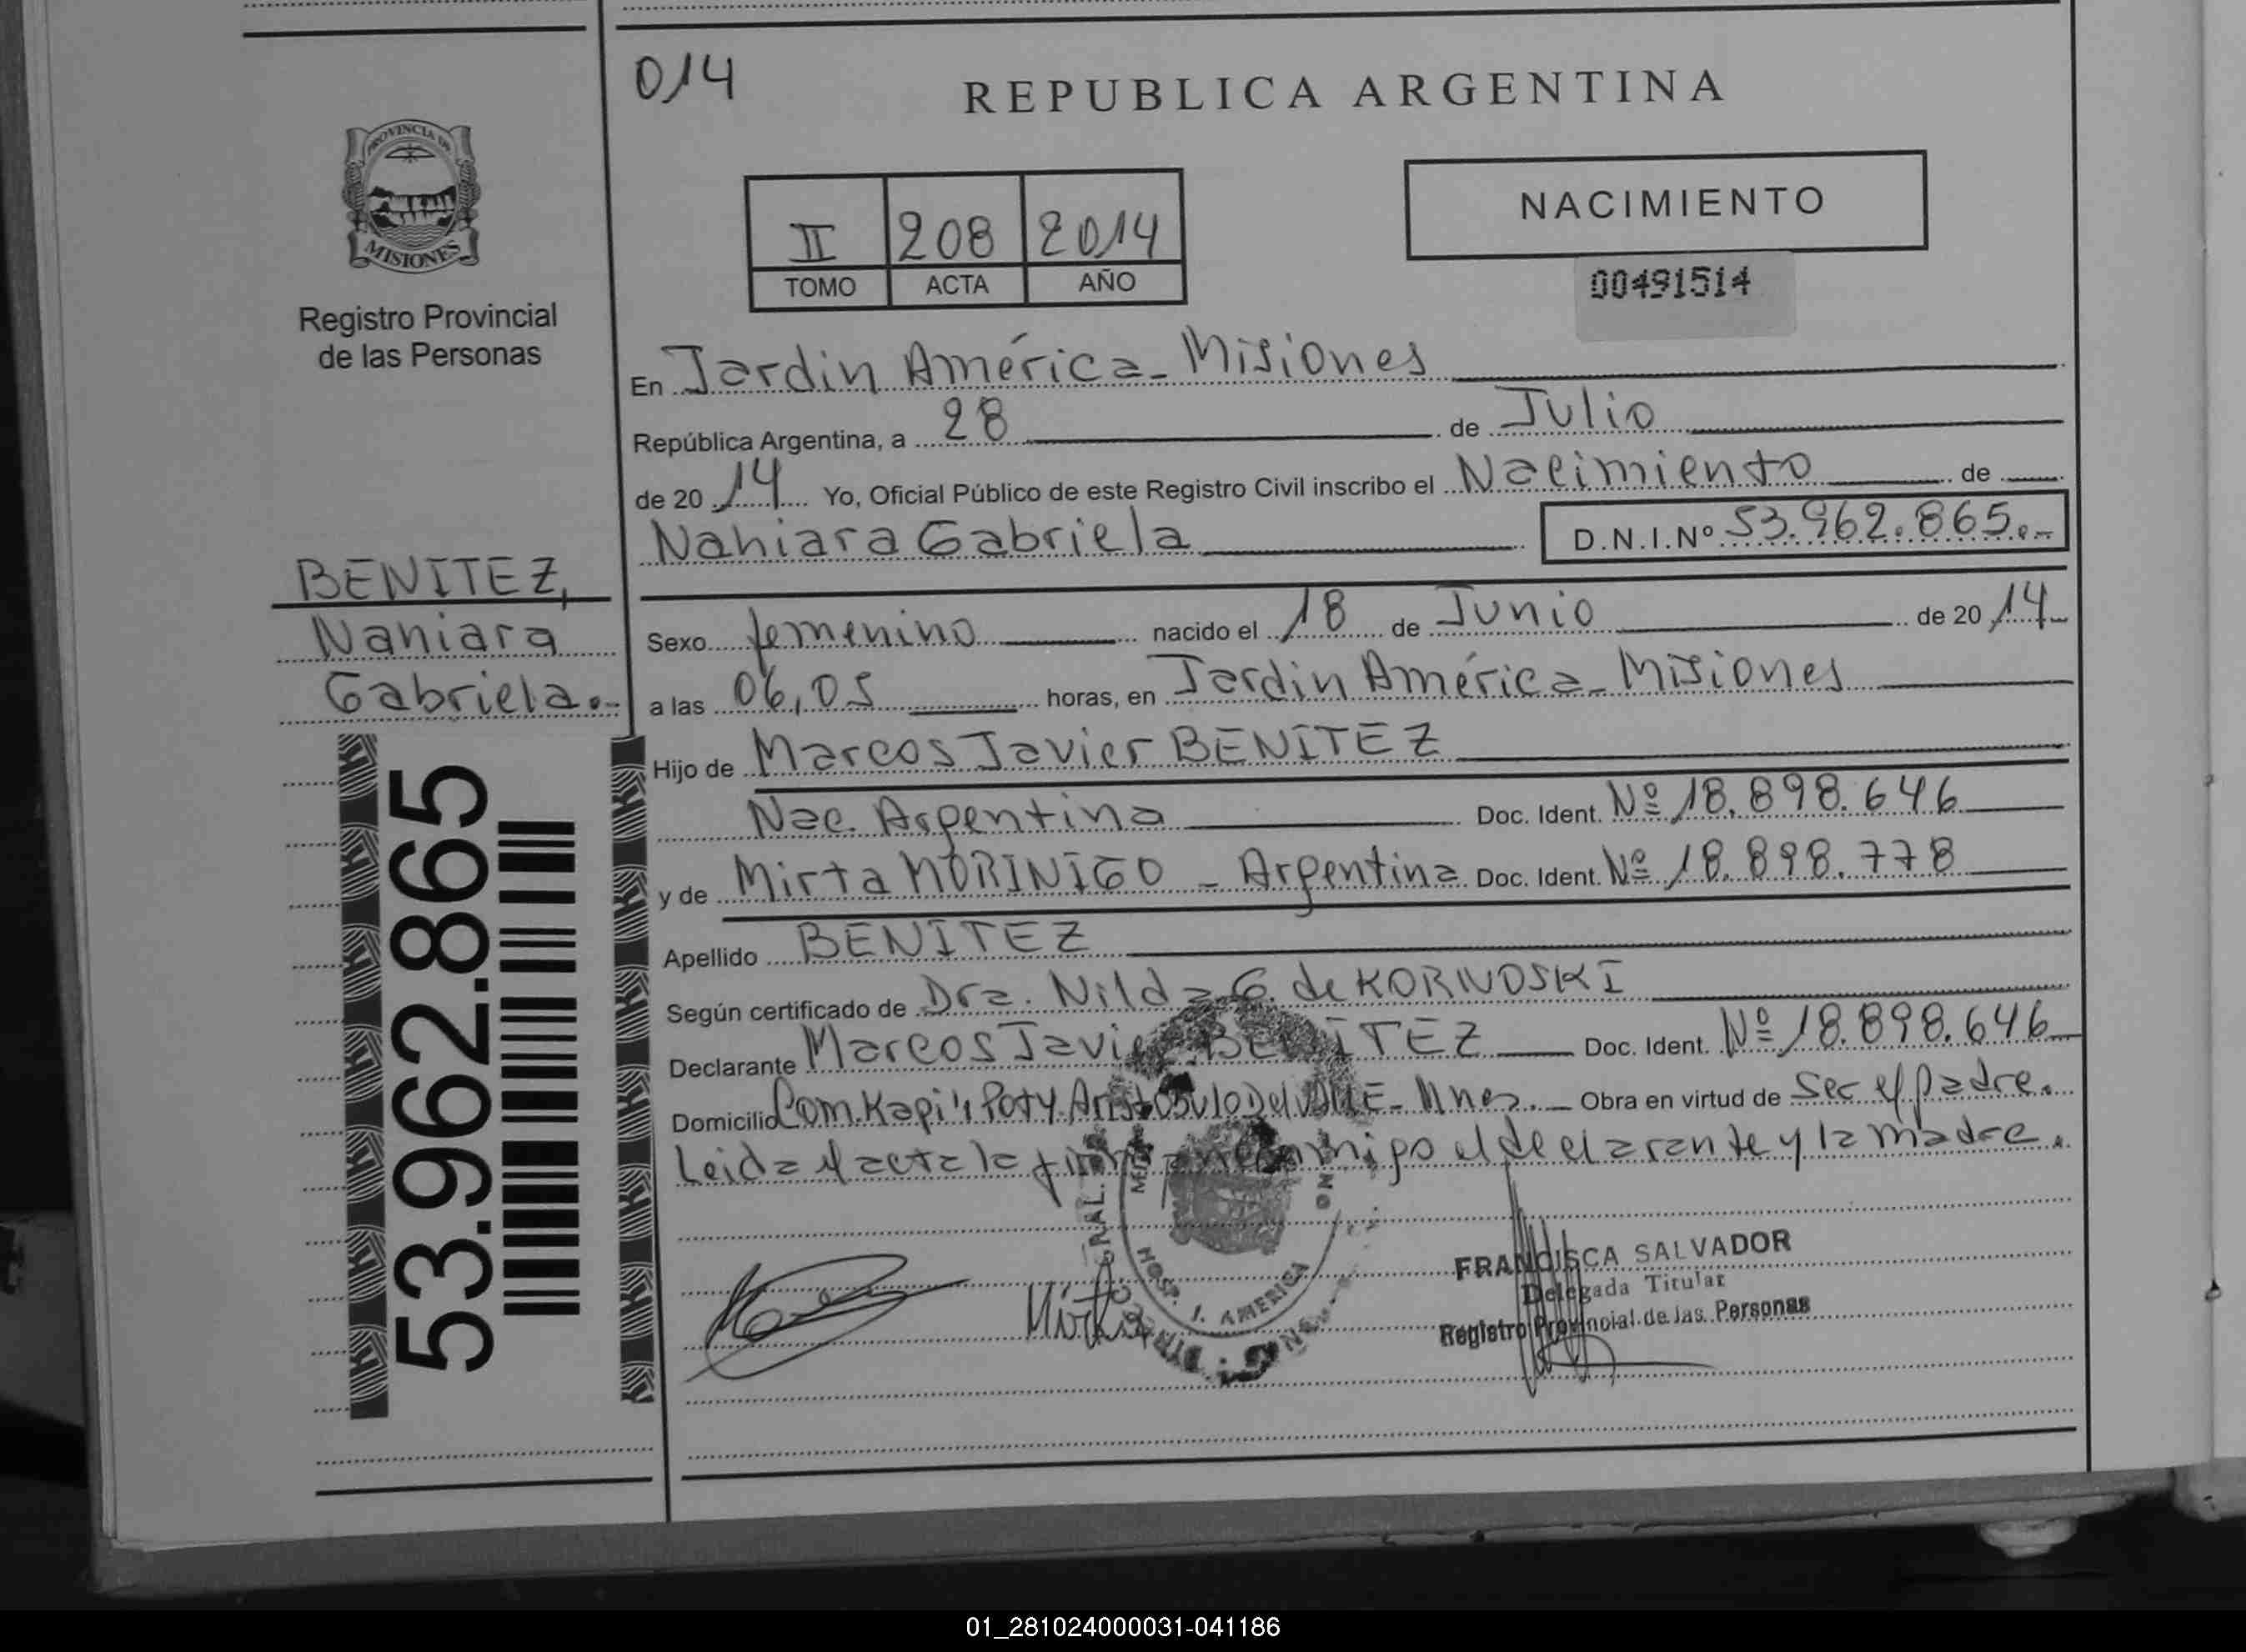 014
REPUBLICA ARGENTINA
PROVINCIA DE
MISIONES
Registro Provincial
de las Personas
II 208 2014
TOMO ACTA AÑO
NACIMIENTO
00491514
En Jardin América - Misiones
República Argentina, a 28 de Julio
de 2014 Yo, Oficial Público de este Registro Civil inscribo el Nacimiento de
Nahiara Gabriela D.N.I.Nº 53.962.865.-
BENITEZ,
Nahiara
Gabriela.-
53.962.865
Sexo femenino nacido el 18 de Junio de 2014
a las 06,05 horas, en Jardin América - Misiones
Hijo de Marcos Javier BENITEZ
Nac. Argentina Doc. Ident. Nº 18.898.646
y de Mirta MORINIGO - Argentina Doc. Ident. Nº 18.898.778
Apellido BENITEZ
Según certificado de Dra. Nilda G. de KORNOSKI
Declarante Marcos Javier BENITEZ Doc. Ident. Nº 18.898.646
Domicilio Com. Kapi'i Poty Aristobulo Del VALLE - Mnes. Obra en virtud de Ser el padre.
Leida el acta la firman conmigo el declarante y la madre.
HOSP. J. AMERICA
Mirta
FRANCISCA SALVADOR
Delegada Titular
Registro Provincial de las Personas
01_281024000031-041186